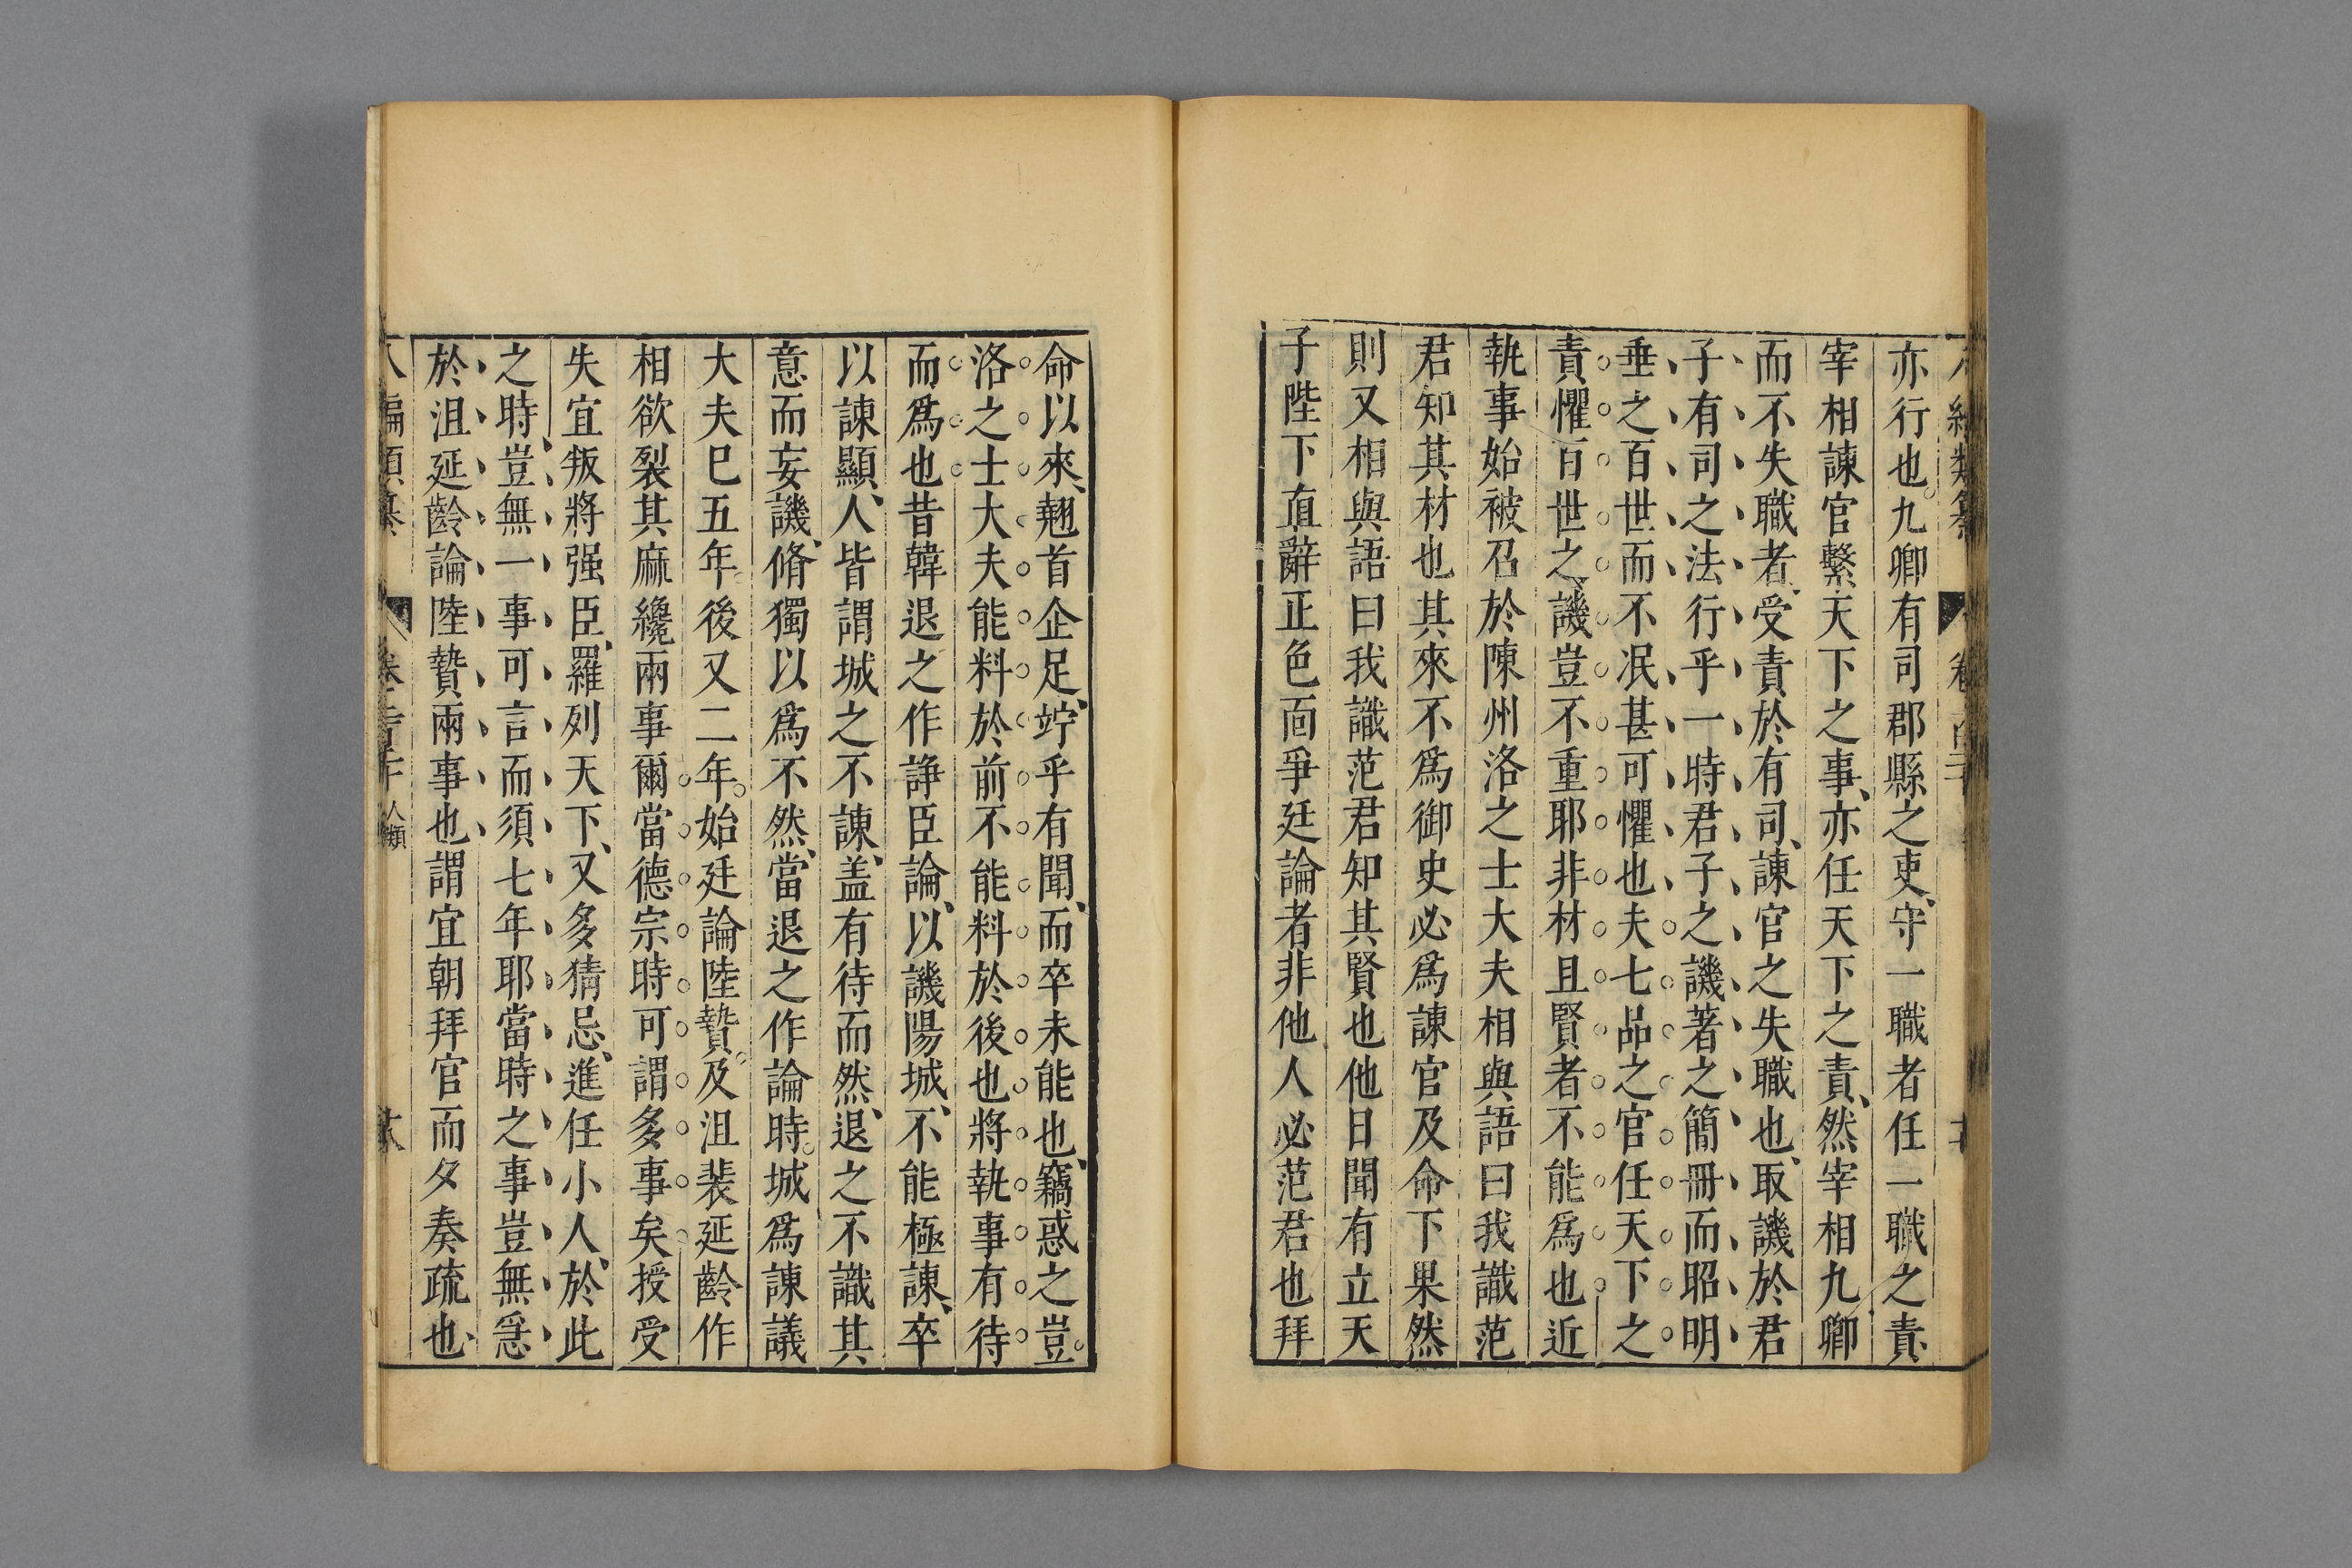 亦行也九卿有司郡縣之吏守一職者任一職之責
宰相諫官繫天下之事亦任天下之責然宰相九卿
而不失職者受責於有司諫官之失職也取譏於君
子有司之法行乎一時君子之譏著之簡冊而昭明
垂之百世而不泯甚可懼也夫七品之官任天下之
責懼百世之譏豈不重耶非材且賢者不能爲也近
執事始被召於陳州洛之士大夫相與語曰我識范
君知其材也其來不爲御史必爲諫官及命下果然
則又相與語曰我識范君知其賢也他日聞有立天
子陛下直辭正色面爭廷論者非他人必范君也拜
命以來翹首企足竚乎有聞而卒未能也竊惑之豈
洛之士大夫能料於前不能料於後也將執事有待
而爲也昔韓退之作諍臣論以譏陽城不能極諫卒
以諫顯人皆謂城之不諫盖有待而然退之不識其
意而妄譏脩獨以爲不然當退之作論時城爲諫議
大夫巳五年後又二年始廷論陸贄及沮裴延齡作
相欲裂其麻纔兩事爾當德宗時可謂多事矣授受
失宜叛將强臣羅列天下又多猜忌進任小人於此
之時豈無一事可言而須七年耶當時之事豈無急
於沮延齡論陸贄兩事也謂宜朝拜官而夕奏疏也